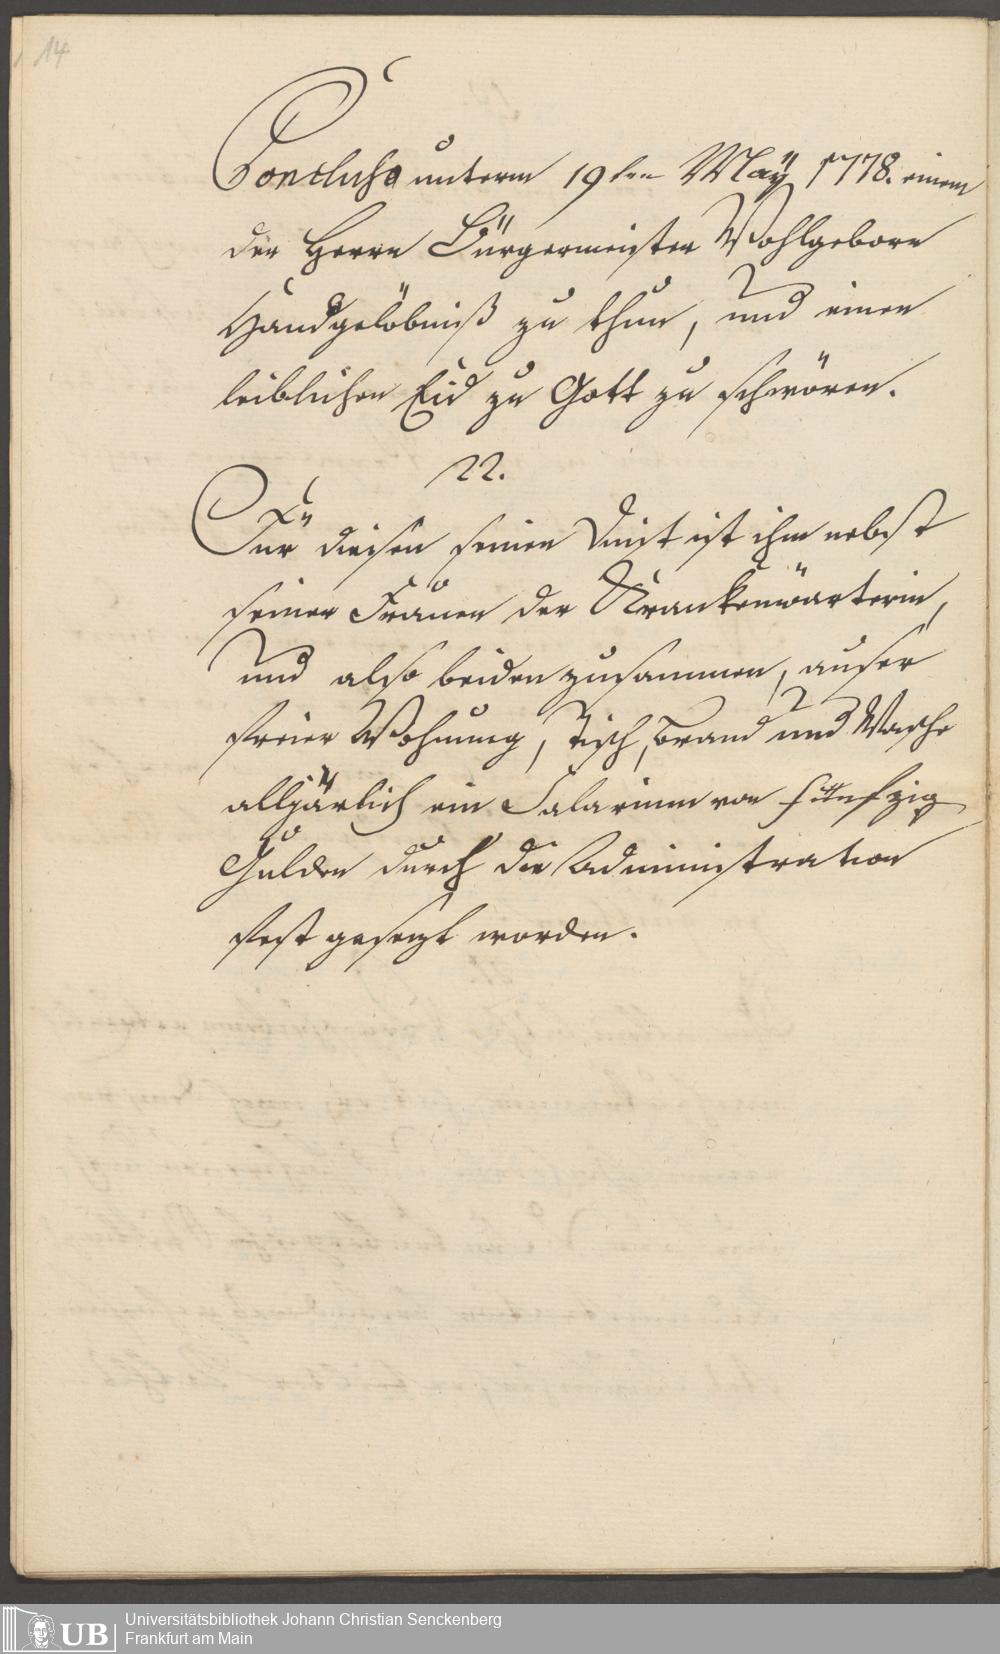 14
Concluso unterm 19ten Maÿ 1778. einem
der Herrn Bürgermeister Wohlgeborn
Handgelöbniß zu thun, und einen
leiblichen Eid zu Gott zu schwören.
22.
Für diesen seinen Dinst ist ihm nebst
seiner Frauen der Krankenwärterin,
und also beiden zusammen, auser
freier Wohnung, Tisch, Brand und Wasche
alljärlich ein Salarium von funfzig
Gulden durch die Administration
fest gesezt worden.
UB
Universitätsbibliothek Johann Christian Senckenberg
Frankfurt am Main